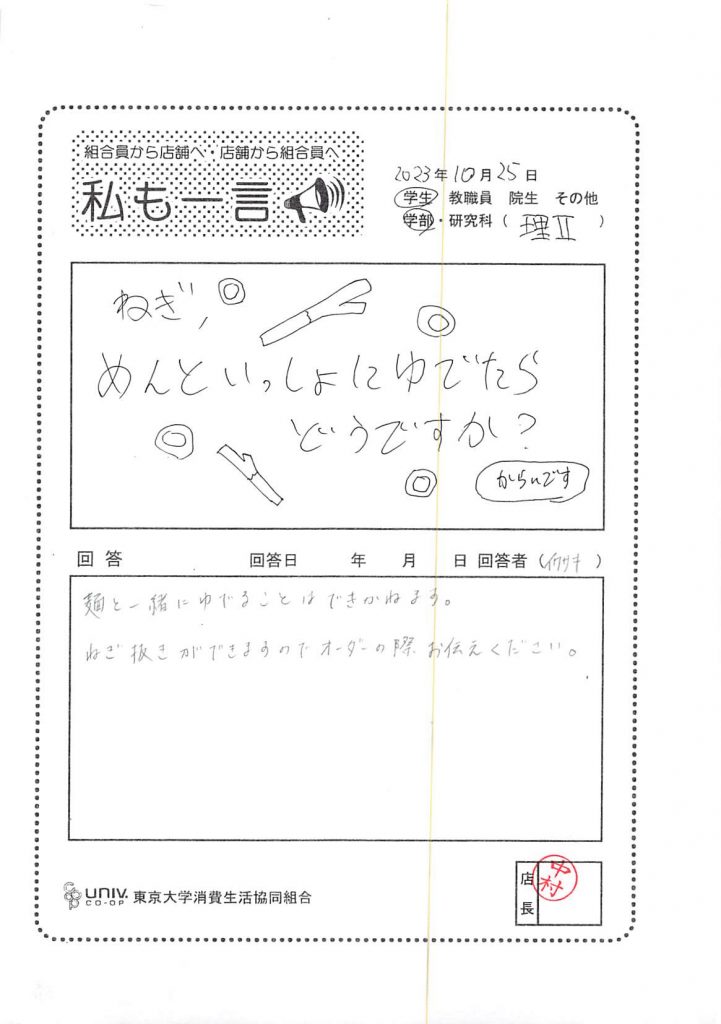 組合員から店舗へ・店舗から組合員へ
私も一言
2023年10月25日
学生 教職員 院生 その他
学部・研究科（理Ⅱ）
ねぎ,
めんといっしょにゆでたら
どうですか?
からいです
回答 回答日 年 月 日 回答者（イワサキ）
麺と一緒にゆでることはできかねます。
ねぎ抜きができますのでオーダーの際お伝えください。
UNIV.
CO-OP
東京大学消費生活協同組合
店長
中村